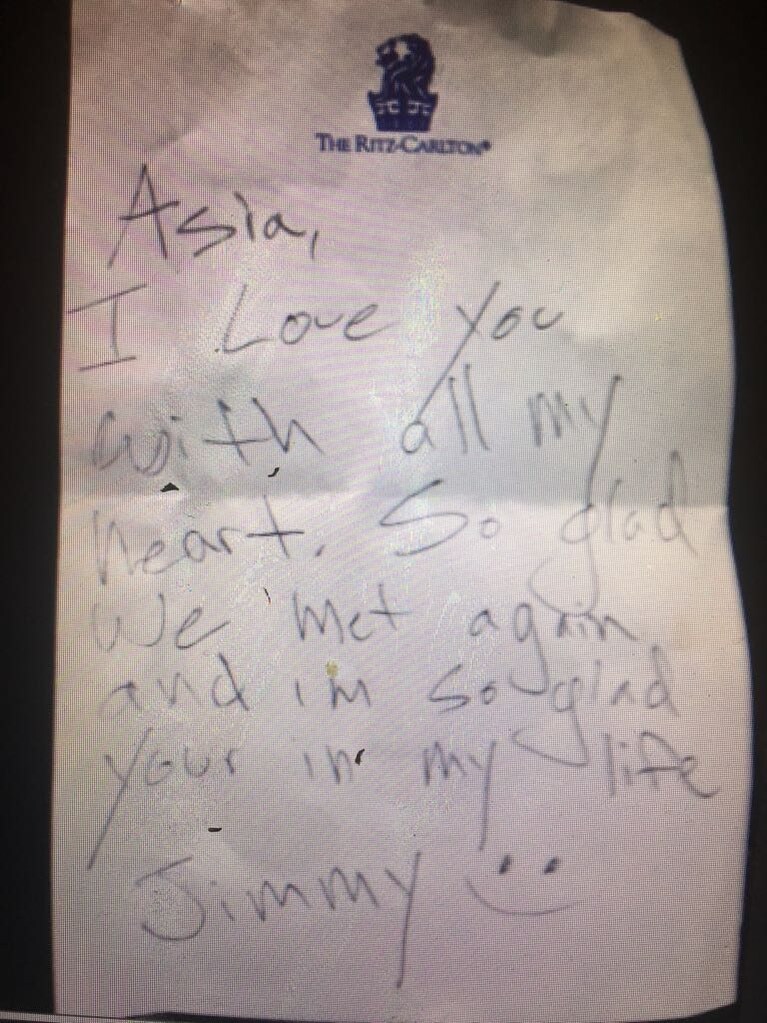 THE RITZ-CARLTON®
Asia,
I Love you
with all my
heart. So glad
We met again
and im so glad
your in my life
Jimmy